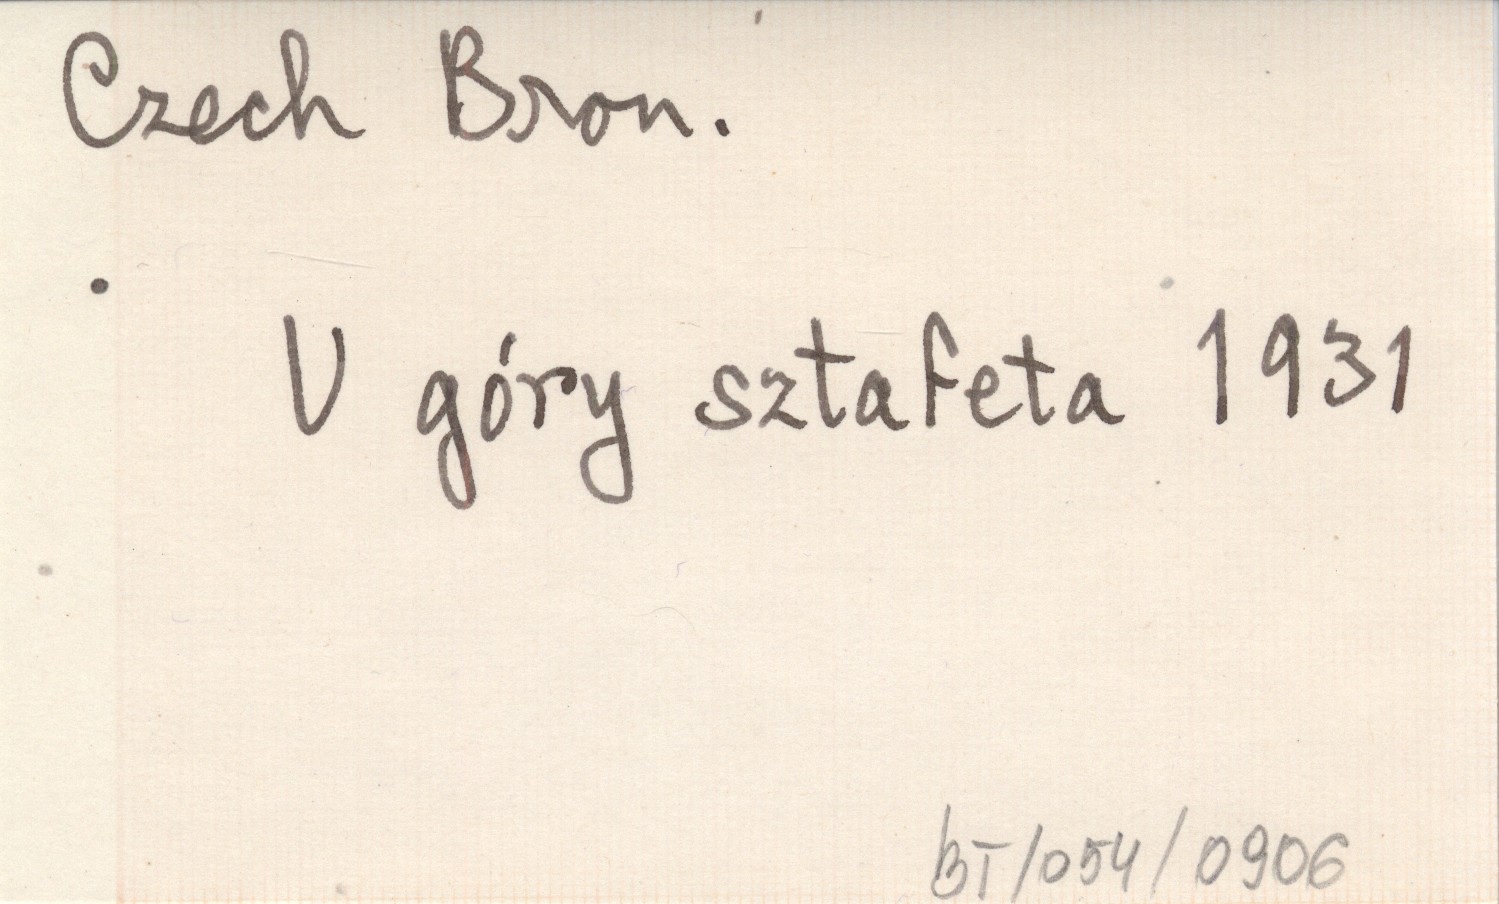 Czech Bron.
V góry sztafeta 1931
BT/054/0906